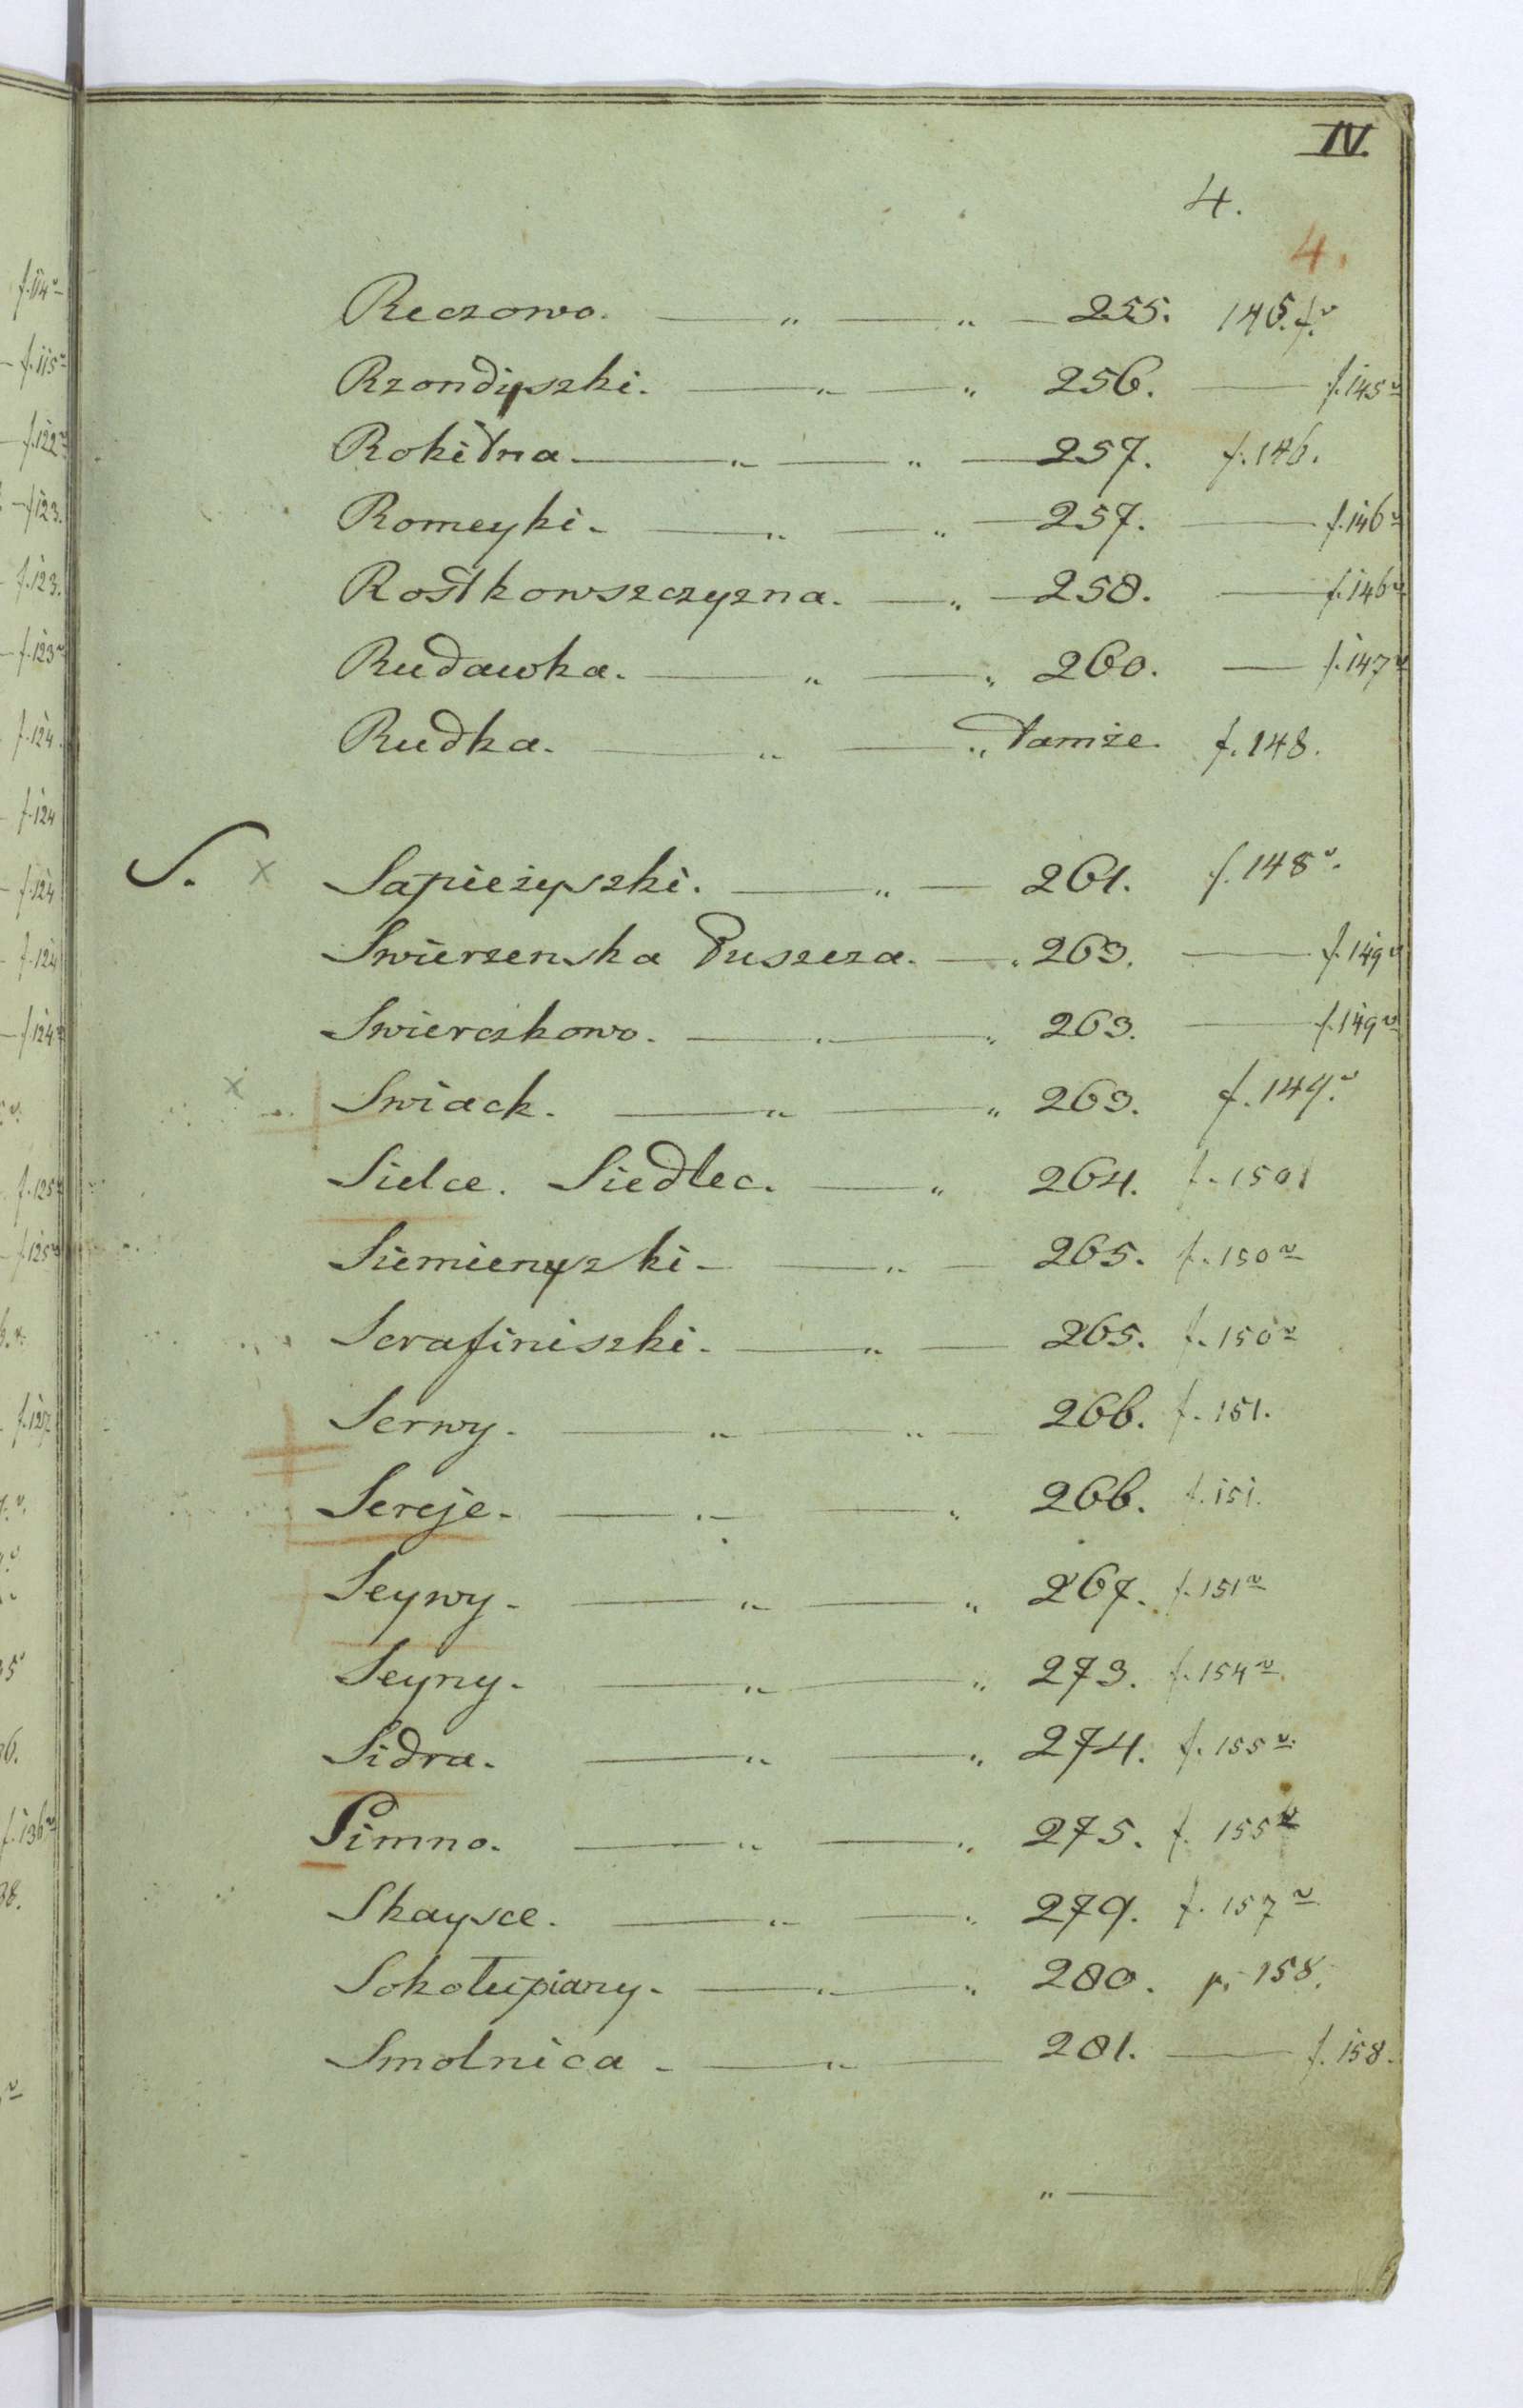 IV.
4.
4.
Reczowo. — „ — „ — 255. 145. f. v
Rzondyszki. — „ — „ 256. — f. 145 v
Rokitna — „ — „ — 257. f. 146.
Romeyki — „ — „ — 257. — f. 146 v
Rostkowszczyzna. — „ — 258. — f. 146 v
Rudawka. — „ — „ 260. — f. 147 v
Rudka. — „ — „ tamże. f. 148.
S. x Sapieżyszki. — „ — 261. f. 148 v.
Swierzenska Puszcza. — „ 263. — f. 149 v
Swierczkowo. — „ — „ 263. — f. 149 v
x Swiack. — „ — „ 263. f. 149. v
Sielce. Siedlec. — „ 264. f. 150
Siemienyszki — „ — 265. f. 150 v
Serafiniszki — „ — 265. f. 150 v
Serwy — „ — „ — 266. f. 151.
Sereje — „ — „ 266. f. 151.
Seywy — „ — „ 267. f. 151 v
Seyny — „ — „ 273. f. 154 v
Sidra — „ — „ 274. f. 155 v.
Simno. — „ — „ 275. f. 155 v
Skaysce. — „ — „ 279. f. 157 v
Sokołupiany — „ — „ 280. p. 158.
Smolnica — „ — 281. — f. 158.
„ —
f. 114 v
f. 115 v
f. 122 v
f. 123.
f. 123.
f. 123 v
f. 124.
f. 124
f. 124
f. 124
f. 124 v
f. 125 v
f. 125 v
f. 127
f. 136 v